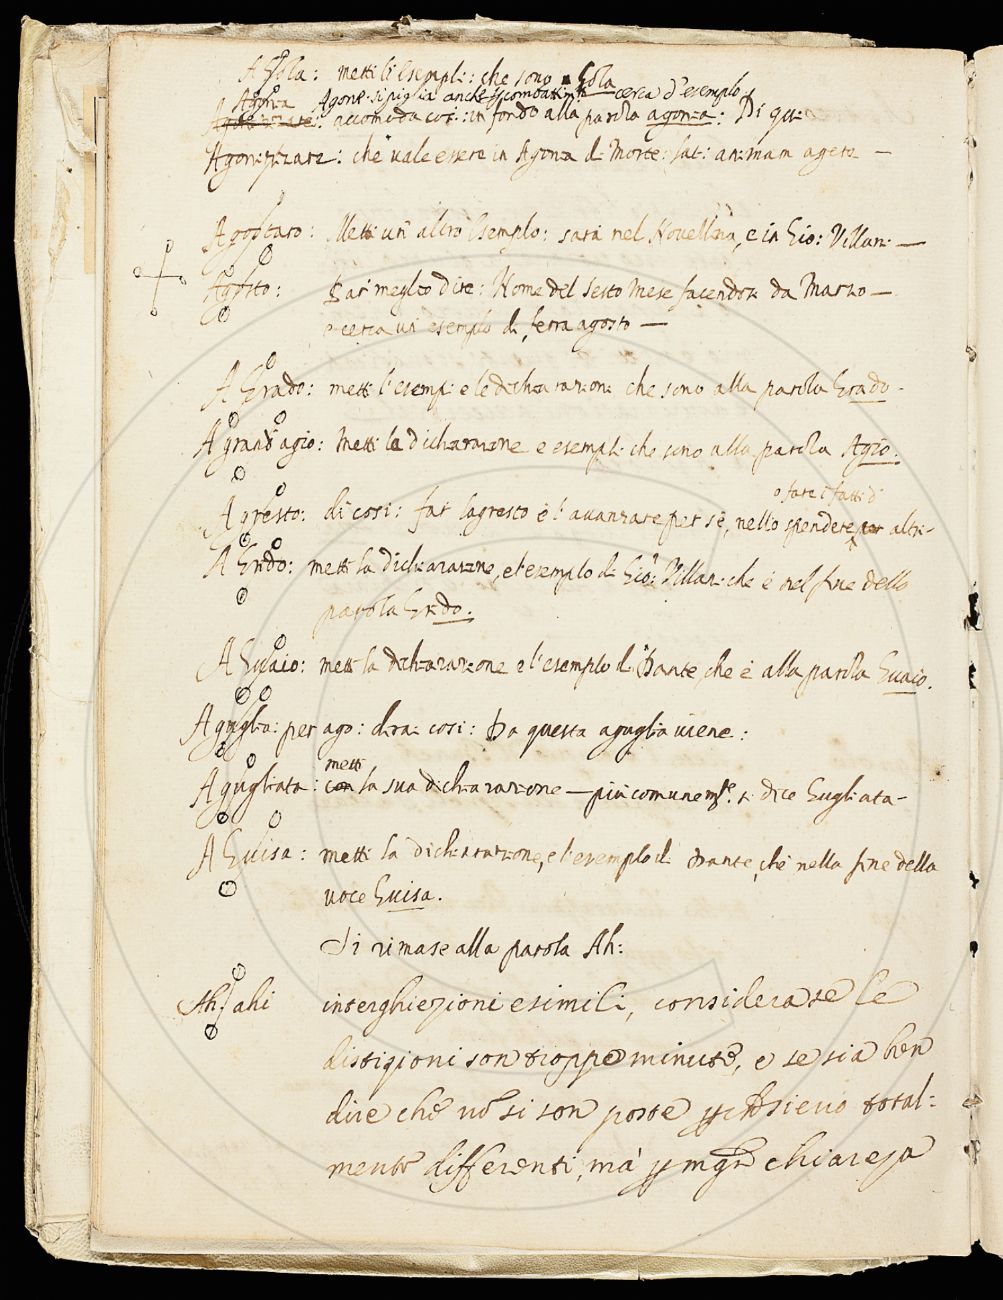 A Gola: metti l'esempli: che sono a Gola
Agonia Agone si piglia anche p combattimto cerca d'esemplo
accomoda così: in fondo alla parola agonia: Di qui
Agonizzare: che vale essere in Agonia di Morte: lat: animam agere —
Agostaro: Metti un altro Esemplo: sarà nel Novellino, e in Gio: Villani —
Agosto: Par meglio dire: Nome del Sesto Mese facendosi da Marzo —
e cerca un esemplo di ferragosto —
A Grado: metti l'esempi e le dichiarazioni che sono alla parola Grado.
A grand'agio: Metti la dichiarazione e esempli che sono alla parola Agio.
o fare i fatti d'
Agresto: dì così: far l'agresto è l'avanzare per sè, nello spendere per altri-
A Grido: metti la dichiarazione, et esemplo di Gio: Villani che è nel fine della
parola Grido.
A Guaio: metti la dichiarazione e l'esemplo di Dante, che è alla parola Guaio.
Aguglia: per ago: dirai così: Da questa aguglia viene:
metti
Agugliata: con la sua dichiarazione — più comunemte. si dice Gugliata-
A Guisa: metti la dichiarazione, e l'esemplo di Dante, che nella fine della
voce Guisa.
Si rimase alla parola Ah:
Ah, ahi interghiezioni e simili, considerare se le
distizioni son troppo minute, e se sia ben
dire che nō si son poste p chè sieno total:
mente differenti, mà p mgr chiareza